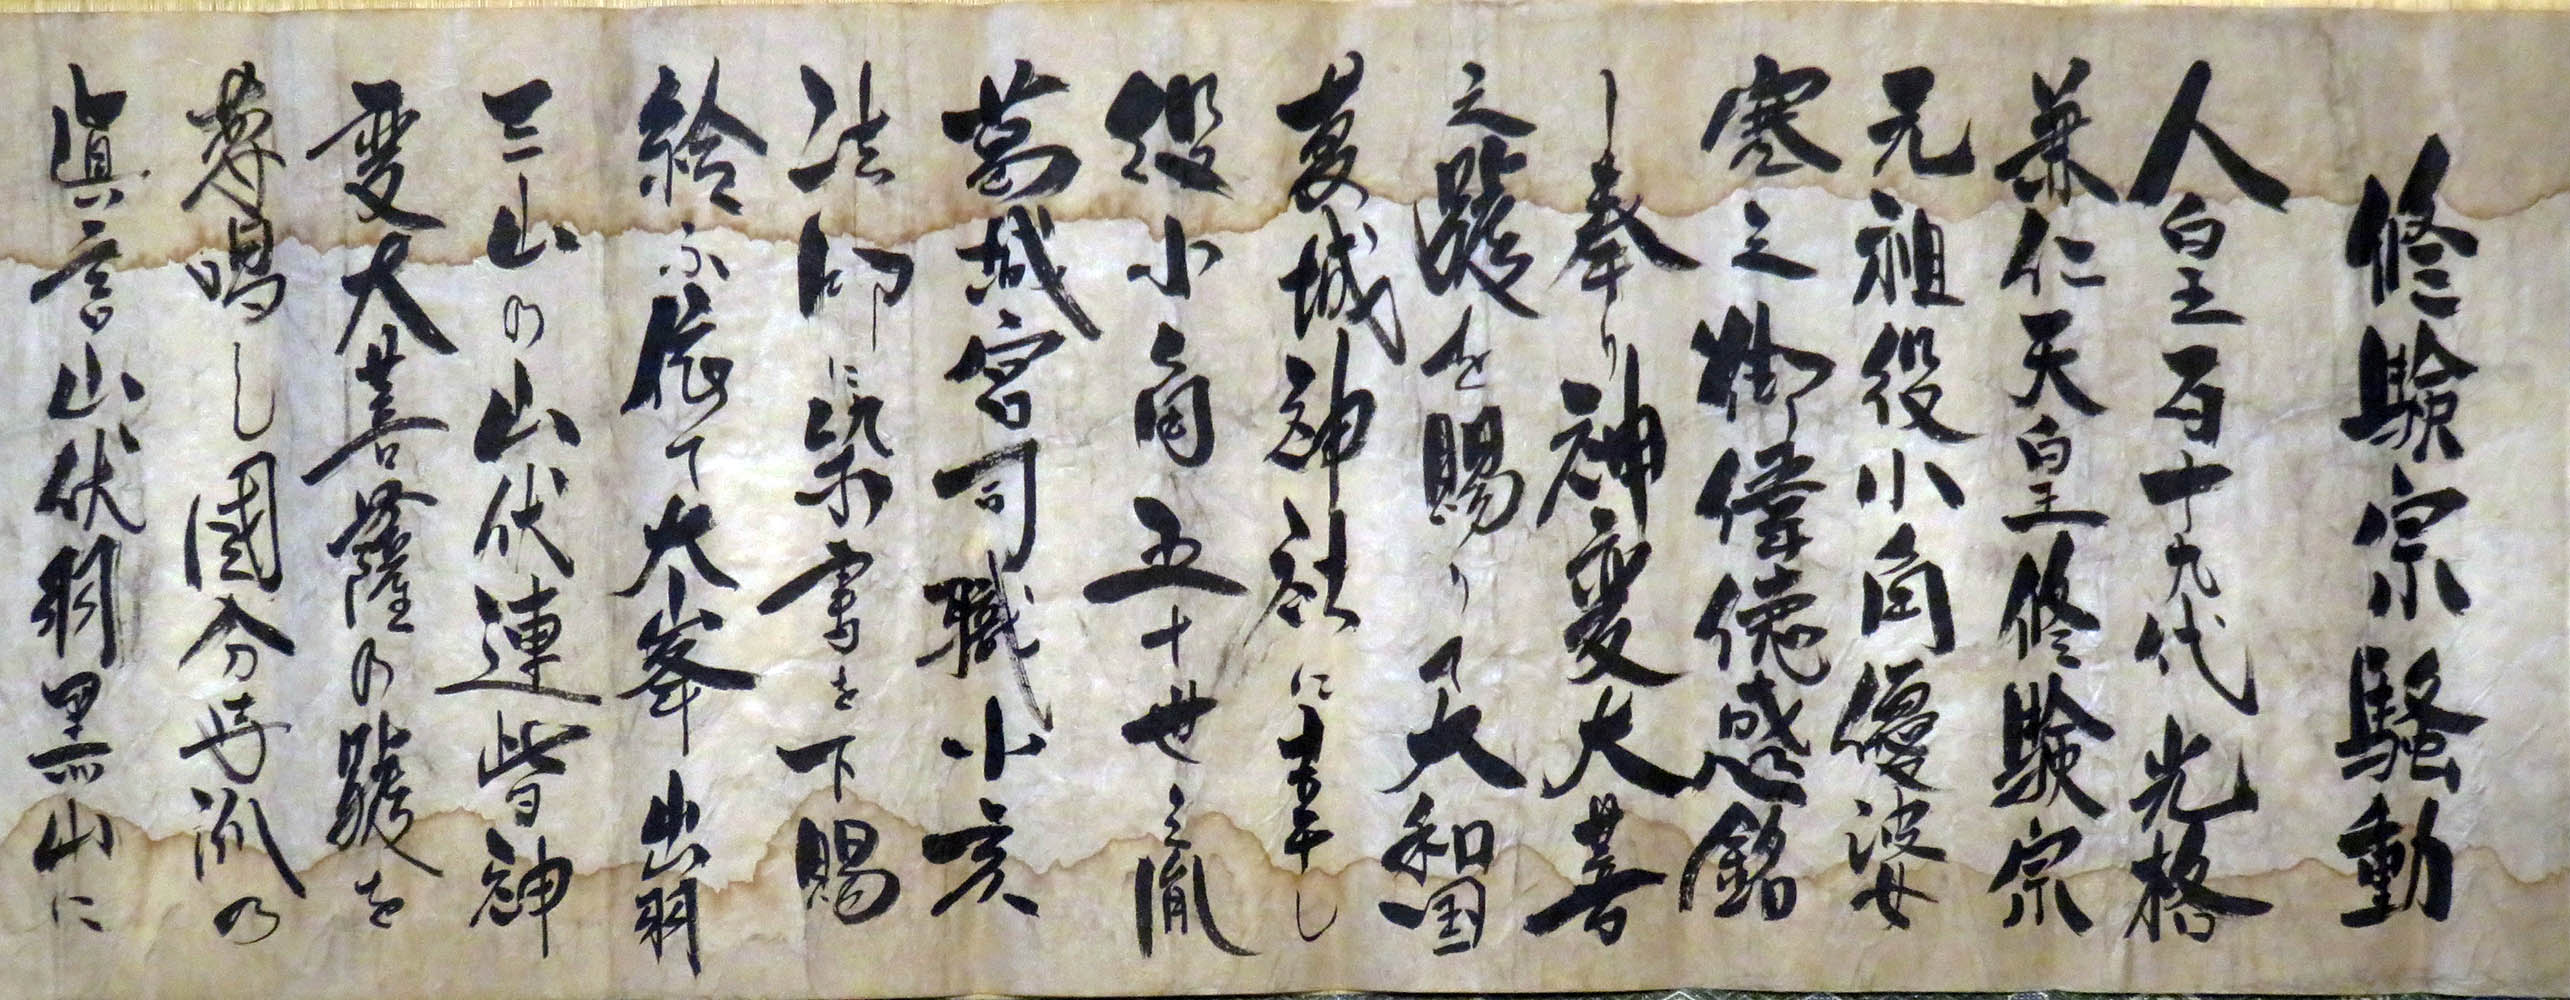 修験宗騒動
人皇百十九代光格
兼仁天皇修験宗
元祖役小角優婆
塞之御偉徳感銘
し奉り神変大菩
之號を賜りて大和国
葛城神社に奉し
役小角五十世之胤
葛城宮司職小亥
法印に染書を下賜
給ふ依て大峯出羽
三山の山伏連皆神
変大菩薩の號を
奉唱し國分寺流の
真言山伏羽黒山に